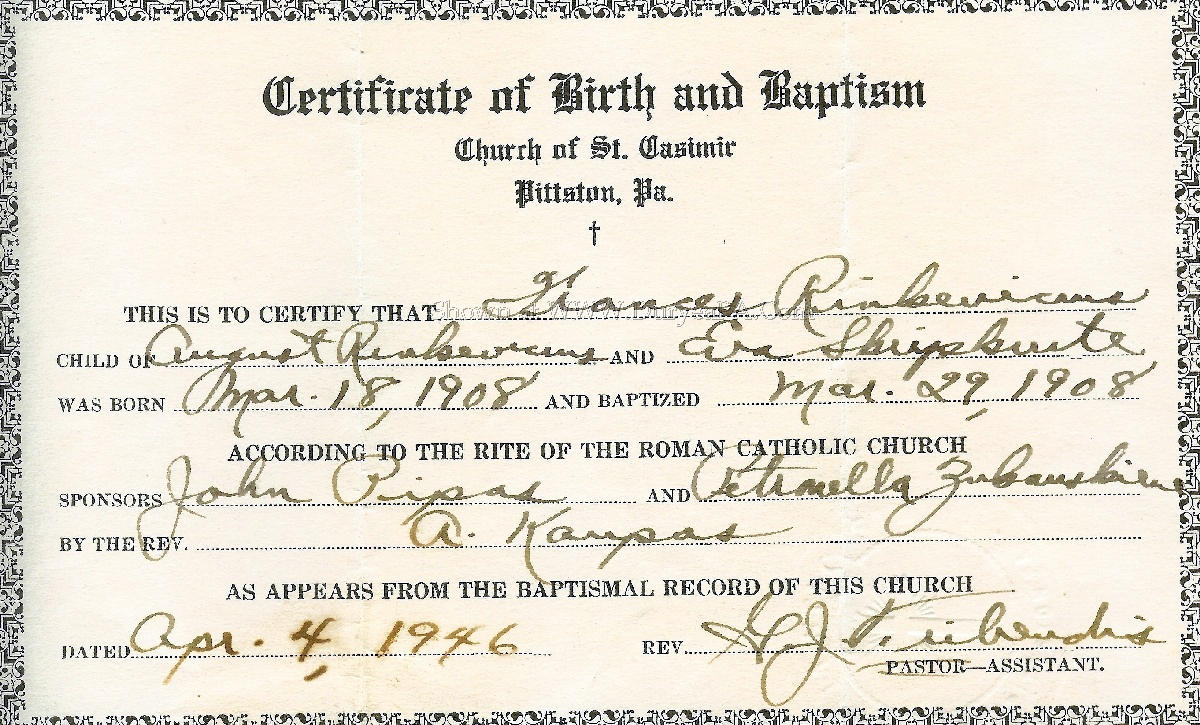 Certificate of Birth and Baptism
Church of St. Casimir
Pittston, Pa.
†
THIS IS TO CERTIFY THAT Frances Rinkevicius
CHILD OF August Rinkevicius AND Eva Skripkiute
WAS BORN Mar. 18, 1908 AND BAPTIZED Mar. 29, 1908
ACCORDING TO THE RITE OF THE ROMAN CATHOLIC CHURCH
SPONSORS John Pipas AND Petronella Zubauskiene
BY THE REV. A. Kaupas
AS APPEARS FROM THE BAPTISMAL RECORD OF THIS CHURCH
DATED Apr. 4, 1946 REV.
PASTOR—ASSISTANT.